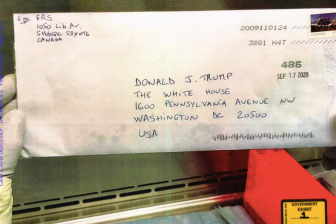 FRS
CANADA
2009110124
3001 H4T
485
SEP 17 2020
DONALD J. TRUMP
THE WHITE HOUSE
1600 PENNSYLVANIA AVENUE NW
WASHINGTON DC 20500
USA
GOVERNMENT
EXHIBIT
1